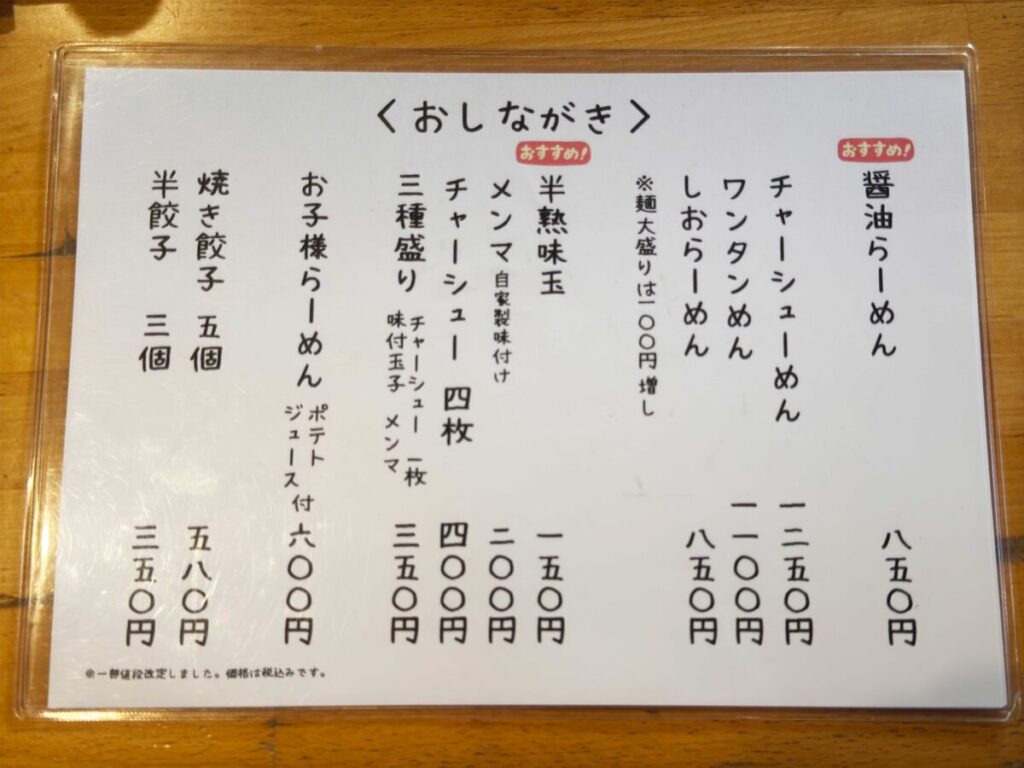 〈おしながき〉
おすすめ!
醤油らーめん 八五〇円
チャーシューめん 一二五〇円
ワンタンめん 一一〇〇円
しおらーめん 八五〇円
※麺大盛りは一〇〇円増し
おすすめ!
半熟味玉 一五〇円
メンマ 自家製味付け 二〇〇円
チャーシュー 四枚 四〇〇円
三種盛り チャーシュー 一枚 味付玉子 メンマ 三五〇円
お子様らーめん ポテト ジュース 付 六〇〇円
焼き餃子 五個 五八〇円
半餃子 三個 三五〇円
※一部値段改定しました。価格は税込みです。